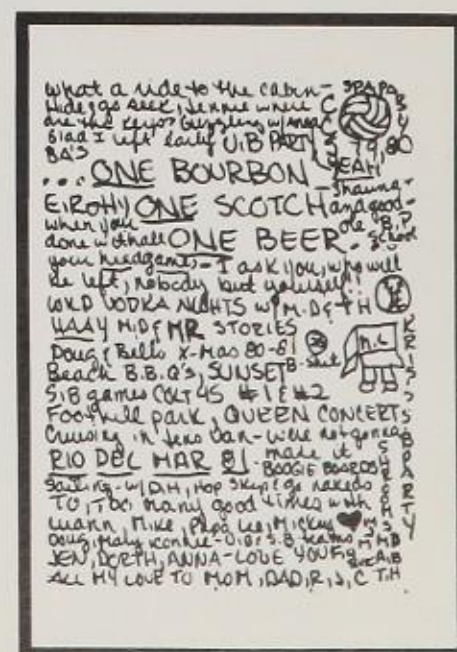 what a ride to the cabin -
Hide & go seek, Jennie where
are the keys? Guzzling w/Anna
Glad I left early V.B PARTY 79,80
BA's YEAH
... ONE BOURBON - Shauna -
E.R.OHY ONE SCOTCH and good
when you ole B.P
done with all ONE BEER - School
your headgames - I ask you, who will
be left, nobody but yourself!!
WILD VODKA NIGHTS w/ M.D & T H
HAAY M.D & MR STORIES
Doug & Bells X-Mas 80-81 B-shit
Beach B.B.Q's, SUNSET
S.B games COLT 45 #1 & #2
Foothill park, QUEEN CONCERTS
Cruising in Jens Van - were not gonna
make it
RIO DEL MAR 81 - BOOGIE BOARDS
Sailing - w/ D.H, Hop Skip & go nakeds
TO, T.O.C many good times with
Luann, Mike, Papa Lee, Mickey
Doug, Maly, Konnie - V.B & S.B teams
JEN, DORTH, ANNA - LOVE YOU
ALL MY LOVE TO MOM, DAD, R, J, C T.H
M.L
KRIS'S BPARTY